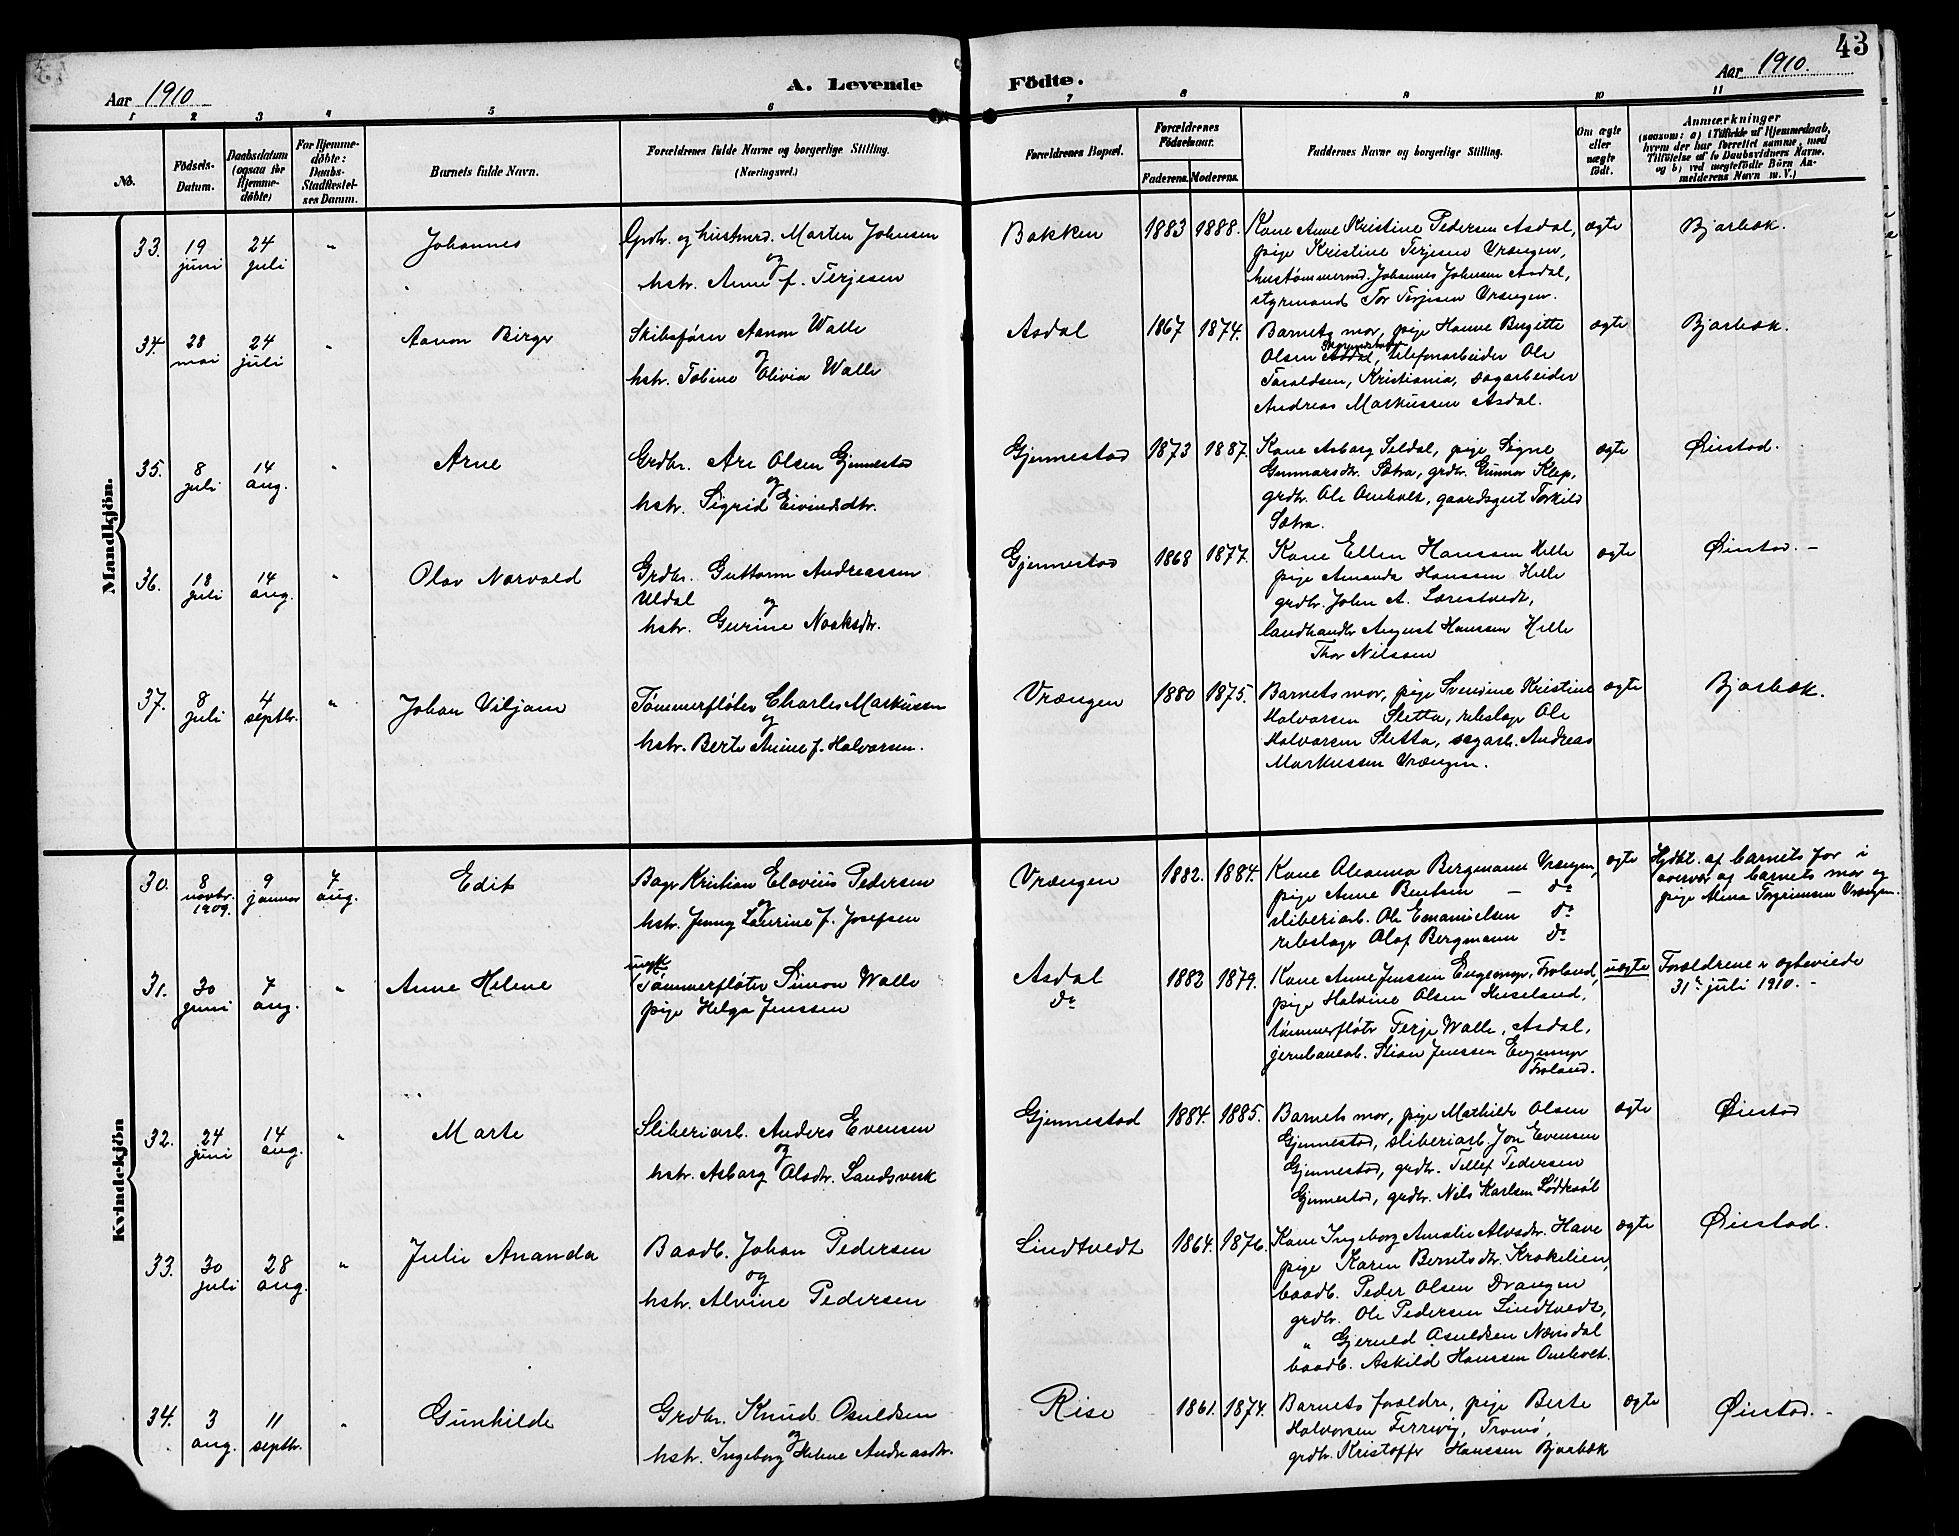 43
Aar 1910
A. Levende Födte.
Aar 1910.
1 2 3 4 5 6 7 8 9 10 11
No.
Födsels-
Datum.
Daabsdatum
(ogsaa for
Hjemme-
döbte)
For Hjemme-
döbte:
Daabs-
Stadfæstel-
ses Datum.
Barnets fulde Navn.
Forældrenes fulde Navne og borgerlige Stilling.
(Næringsvei.)
Forældrenes Bopæl.
Forældrenes
Födselsaar.
Faderens. Moderens.
Faddernes Navne og borgerlige Stilling.
Om ægte
eller
uægte
födt.
Anmærkninger
(saasom: a) i Tilfælde af Hjemmedaab,
hvem der har forrettet samme, med
Tilföielse af to Daabsvidners Navne,
og b) ved uægtefödte Börn An-
melderens Navn m. V.)
Mandkjön.
33. 19 juni
24 juli
"
Johannes
Grdbr. og hustmrd. Marten Johnsen
og
hstr. Anne f. Terjesen
Bakken
1883 1888.
Kone Anne Kristine Pedersen Asdal,
pige Kristine Terjesen Vrængen,
hustømmermd. Johannes Johnsen Asdal,
styrmand Tor Terjesen Vrængen.
ægte
Bjorbæk.
34. 28 mai
24 juli
"
Aanon Birger
Skibsfører Aanon Walle
og
hstr. Tobine Olivia Walle
Asdal
1867 1874.
Barnets mor, pige Hanne Birgitte
Olsen Asdal, telefonarbeider Ole
Taraldsen, Kristiania, sagarbeider
Andreas Markussen Asdal.
ægte
Bjorbæk.
35. 8 juli
14 aug.
"
Arne
Grdbr. Are Olsen Gjennestad
og
hstr. Sigrid Eivindsdtr.
Gjennestad
1873 1887.
Kone Asborg Seldal, pige Signe
Gunnarsdtr. Sætra, grdbr. Gunnar Klep,
grdbr. Ole Omholt, gaardsgut Torkild
Sætra.
ægte
Øiestad.
36. 18 juli
14 aug.
"
Olav Norvald
Grdbr. Guttorm Andreassen
Uldal
og
hstr. Gurine Noaksdtr.
Gjennestad
1868 1877.
Kone Ellen Hanssen Helle
pige Amanda Hanssen Helle
grdbr. John A. Lærestvedt,
landhandler August Hanssen Helle
Thor Nilssen
ægte
Øiestad. –
37. 8 juli
4 septbr.
"
Johan Viljam
Tømmerfløter Charles Markussen
og
hstr. Berte Anine f. Halvorsen.
Vrængen
1880 1875.
Barnets mor, pige Svenvine Kristine
Halvorsen Sletta, rebslager Ole
Halvorsen Sletta, sagarb. Andreas
Markussen Vrængen.
ægte
Bjorbæk.
Kvindekjön
30. 8 novbr. 1909.
9 januar
7 aug.
Edit
Bager Kristian Elovius Pedersen
og
hstr. Jenny Laurine f. Josefsen
Vrængen
1882. 1884.
Kone Oleanna Bergmann Vrængen,
pige Anne Bentsen – do
sliberiarb. Ole Emanuelsen do
rebslager Olaf Bergmann do
ægte
Hjdbt. af barnets far i
overvær af barnets mor og
pige Alma Torgrimsen Vrængen.
31. 30 juni
7 aug.
"
Anne Helene
ungk.
Tømmerfløter Simon Walle
pige Helga Jenssen
Asdal
do
1882 1879.
Kone Anne Jenssen Engemyr, Froland,
pige Halvine Olsen Huseland,
tømmerfløter Terje Walle, Asdal,
jernbanearb. Stian Jenssen Engemyr
Froland.
uægte
Forældrene er ægteviede
31te juli 1910. –
32. 24 juni
14 aug.
"
Marte
Sliberiarb. Anders Evensen
og
hstr. Asborg Olsdtr. Landsverk
Gjennestad
1884. 1885.
Barnets mor, pige Mathilde Olsen
Gjennestad, sliberiarb. Jon Evensen
Gjennestad, grdbr. Tellef Pedersen
Gjennestad, grdbr. Nils Karlsen Løddesøl
ægte
Øiestad
33. 30 juli
28 aug.
"
Julie Ananda
Baadb. Johan Pedersen
og
hstr. Alvine Pedersen
Lindtvedt
1864. 1876.
Kone Ingeborg Amalie Alvsdtr. Have
pige Karen Berntsdtr. Krokelien,
baadb. Peder Olsen Drangen
grdbr. Ole Pedersen Lindtvedt,
" Gjeruld Osuldsen Næsdal
baadb. Askild Hanssen Omholt.
ægte
Øiestad.
34. 3 aug.
11 septbr.
"
Gunhilde
Grdbr. Knud Osuldsen
og
hstr. Ingeborg Helene Andreasdtr.
Rise
1861. 1874.
Barnets forældre, pige Berte
Halvorsen Færvig, Tromø,
grdbr. Kristoffer Hanssen Bjorbæk
ægte
Øiestad. –